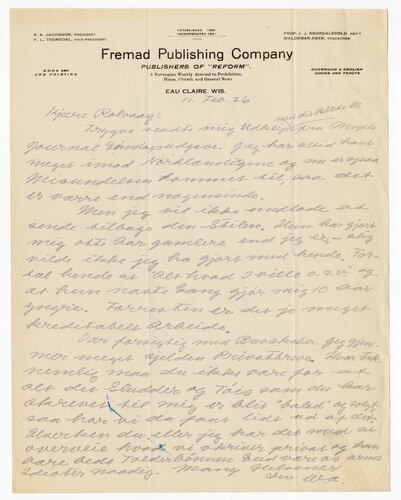 K. A. JACOBSON, PRESIDENT
P. L. TRONSDAL, VICE-PRESIDENT
ESTABLISHED 1886
INCORPORATED 1891
PROF. J. J. SKORDALSVOLD SEC'Y
WALDEMAR AGER, TREASURER
Fremad Publishing Company
PUBLISHERS OF "REFORM"
BOOK AND
JOB PRINTING
A Norwegian Weekly devoted to Prohibition,
Home, Church and General News
NORWEGIAN & ENGLISH
BOOKS AND TRACTS
EAU CLAIRE, WIS.
11. Feb. 26
Kjære Rolvaag!
Trygve sendte mig Udklip fra Mpls
Journal Søndagsudgave. Jeg har altid havt
meget imod Nordlændingene og nu er ogsaa
Misundelsen kommet til, saa det
er værre end nogensinde.
Men jeg vil ikke undlade at
sende tilbage den Stilen. Hun har gjort
mig otte Aar gamlere end jeg er, – slig
vilde ikke jeg ha gjort med hende. For-
tæl hende at "Alt hvad I ville o.s.v" og
at hun næste Gang gjør mig 10 Aar
yngre. Forresten er det jo meget
kreditabelt Arbeide.
Vær forsigtig med Buoskaber. Jeg gjem-
mer meget sjelden Privatbreve. Hvor tak-
nemlig maa du ikke være for at
alt det Sludder og Tøis som du har
skrevet til mig er blit
saa har vi da faat lidt ud af det.
Hverken du eller jeg har det med at
overveie hvad vi skriver privat og kan
bare bede Faderbønnen Gud vær os arme
Idioter naadig. Mang Hilsener
din WA.